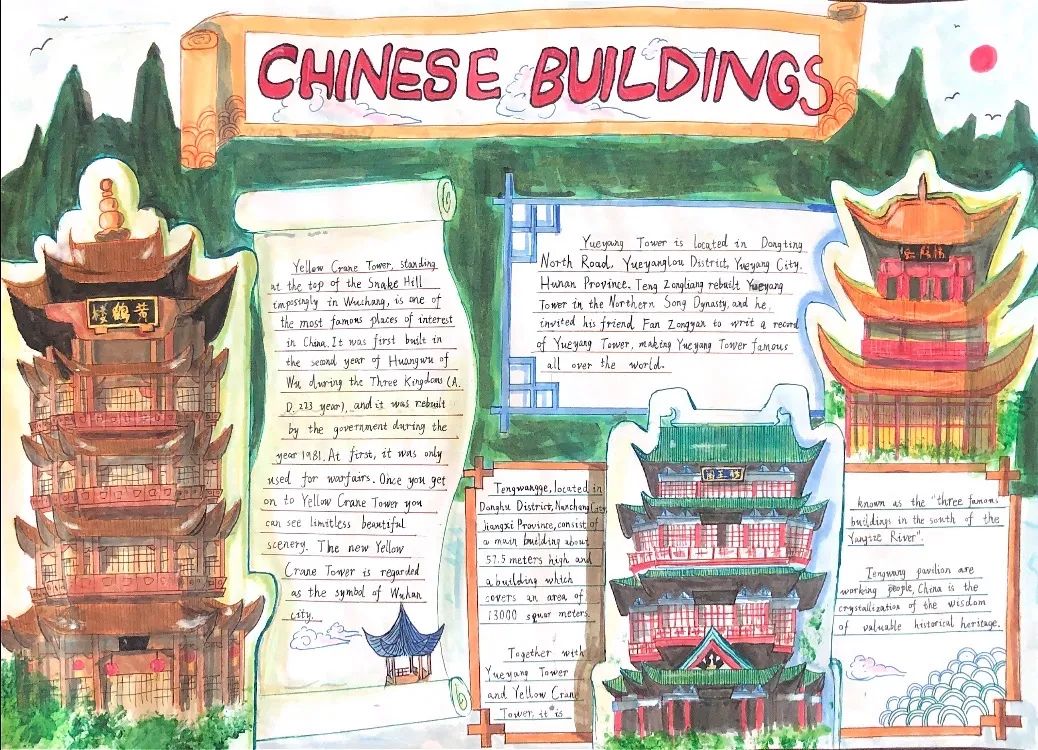 CHINESE BUILDINGS
黄鹤楼
Yellow Crane Tower, standing
at the top of the Snake Hill
imposingly in Wuchang, is one of
the most famous places of interest
in China. It was first built in
the second year of Huangwu of
Wu during the Three Kingdoms (A.
D. 223 year), and it was rebuilt
by the government during the
year 1981. At first, it was only
used for warfairs. Once you get
on to Yellow Crane Tower you
can see limitless beautiful
scenery. The new Yellow
Crane Tower is regarded
as the symbol of Wuhan
city.
Yueyang Tower is located in Dongting
North Road, Yueyanglou District, Yueyang City,
Hunan Province. Teng Zongliang rebuilt Yueyang
Tower in the Northern Song Dynasty, and he
invited his friend Fan Zongyan to writ a record
of Yueyang Tower, making Yueyang Tower famous
all over the world.
Tengwangge, located in
Donghu District, Nanchang City,
Jiangxi Province, consist of
a main building about
57.5 meters high and
a building which
covers an area of
13000 squar meters.
Together with
Yueyang Tower
and Yellow Crane
Tower, it is
known as the "three famous
buildings in the south of the
Yangtze River".
Tengwang pavilion are
working people, China is the
crystallization of the wisdom
of valuable historical heritage.